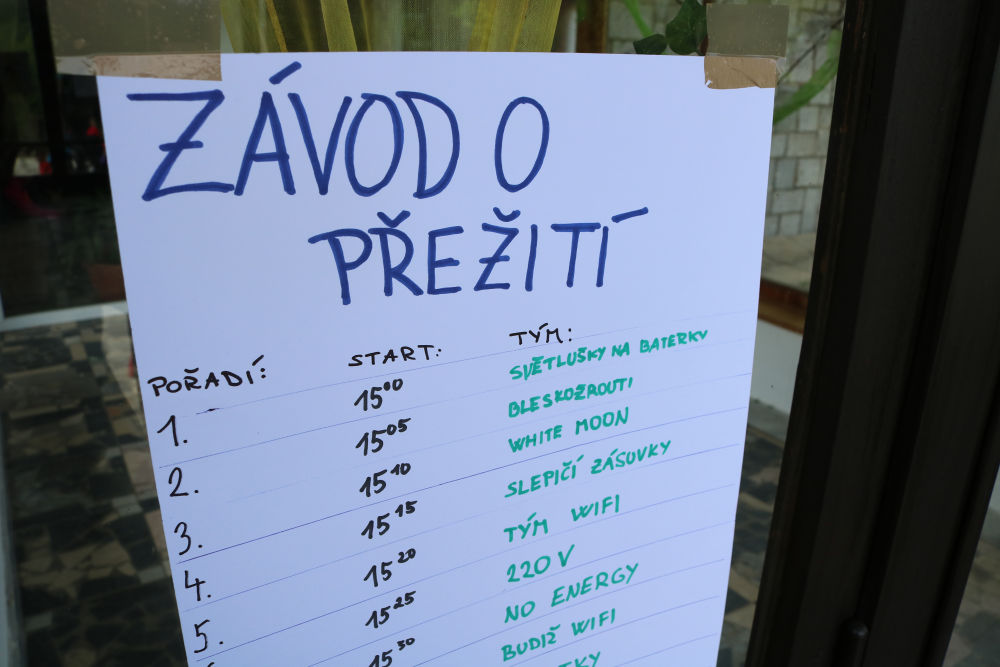 ZÁVOD O
PŘEŽITÍ
POŘADÍ: START: TÝM:
1. 15⁰⁰ SVĚTLUŠKY NA BATERKY
2. 15⁰⁵ BLESKOŽROUTI
3. 15¹⁰ WHITE MOON
4. 15¹⁵ SLEPIČÍ ZÁSUVKY
5. 15²⁰ TÝM WIFI
15²⁵ 220 V
15³⁰ NO ENERGY
BUDIŽ WIFI